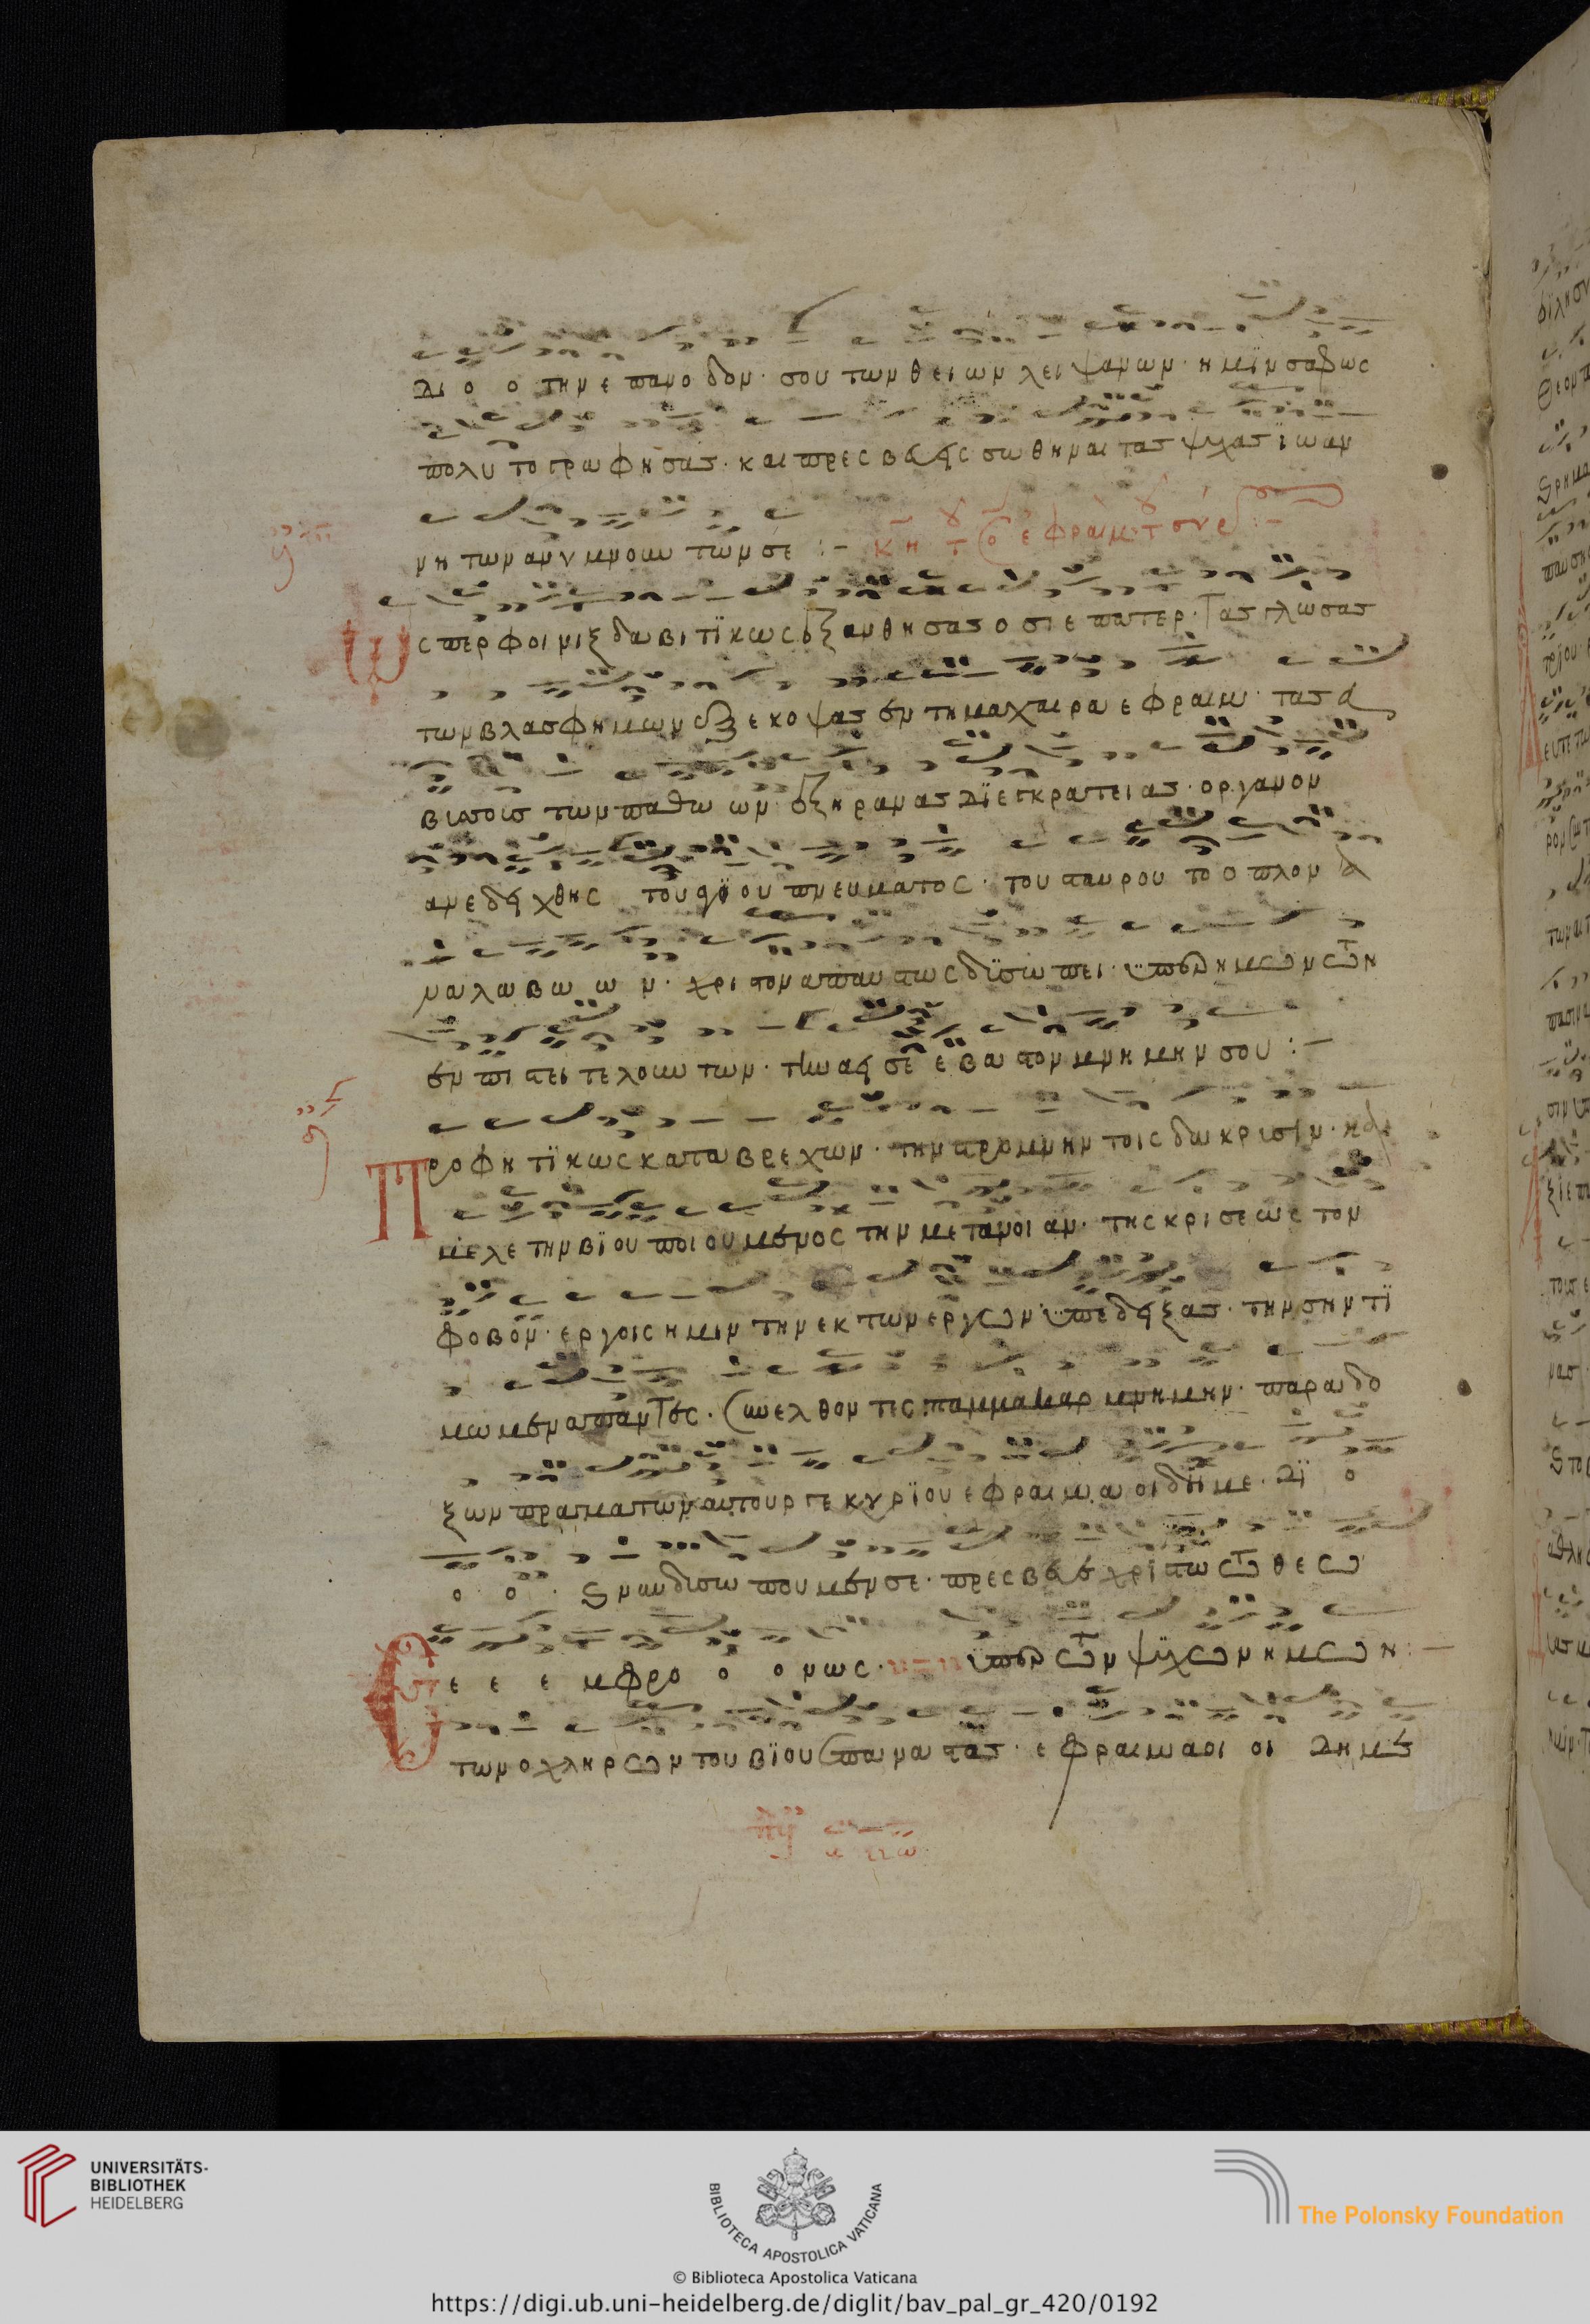 δι ο ο την ε πανο δον · σου των θει ων λει ψανων · η μιν σαφως
πολυ το τρω φη σας · και πρες βευεις σω θη ναι τας ψυχας ϊ ω αν
νη των αν υ μνουν των σε :-
Ω ς περ φοι νιξ δα βι τϊ κως εξ αν θη σας ο σι ε πατερ · τας γλωσας
των βλασφημων εξ ε κο ψας εν τη μαχαι ρα ε φραιμ · τας α
βυσσους των παθω ων · εξη ρανας δϊ εγκρατει ας · οργανον
ανεδειχθης του αγϊου πνευματος · του σταυρου το ο πλον α
να λα βω ω ν · χρι στον απαυστως δυσωπει · ϋπερ ημων των
εν πι στει τε λουν των · την αει σε ε βα στον μνημην σου :-
Προφη τϊ κως κατα βρε χων · την στρωμνην τοις δακρυσιν · και
με λε την βϊου ποιουμενος την μετανοι αν · της κρι σε ως τον
φοβον · εργοις ημιν την εκ των εργων ϋπεδειξας · την σην τϊ
μωμεν απαντες · συνελθοντες παμμακαρ μνημην · παραδο
ξων πραγματων αυτουργε κυρϊου εφραιμ αοιδιμε · δϊ ο
ο ο · νυν δυσωπουμεν σε · πρεσβευε χρϊστω τω θεω
ε ε ε μφρο ο ονως · ϋπερ των ψυχων ημων :-
των οχληρων του βϊου απαναστας · ε φραιμ αοι οι διμε
UNIVERSITÄTS-
BIBLIOTHEK
HEIDELBERG
BIBLIOTECA APOSTOLICA VATICANA
The Polonsky Foundation
© Biblioteca Apostolica Vaticana
https://digi.ub.uni-heidelberg.de/diglit/bav_pal_gr_420/0192